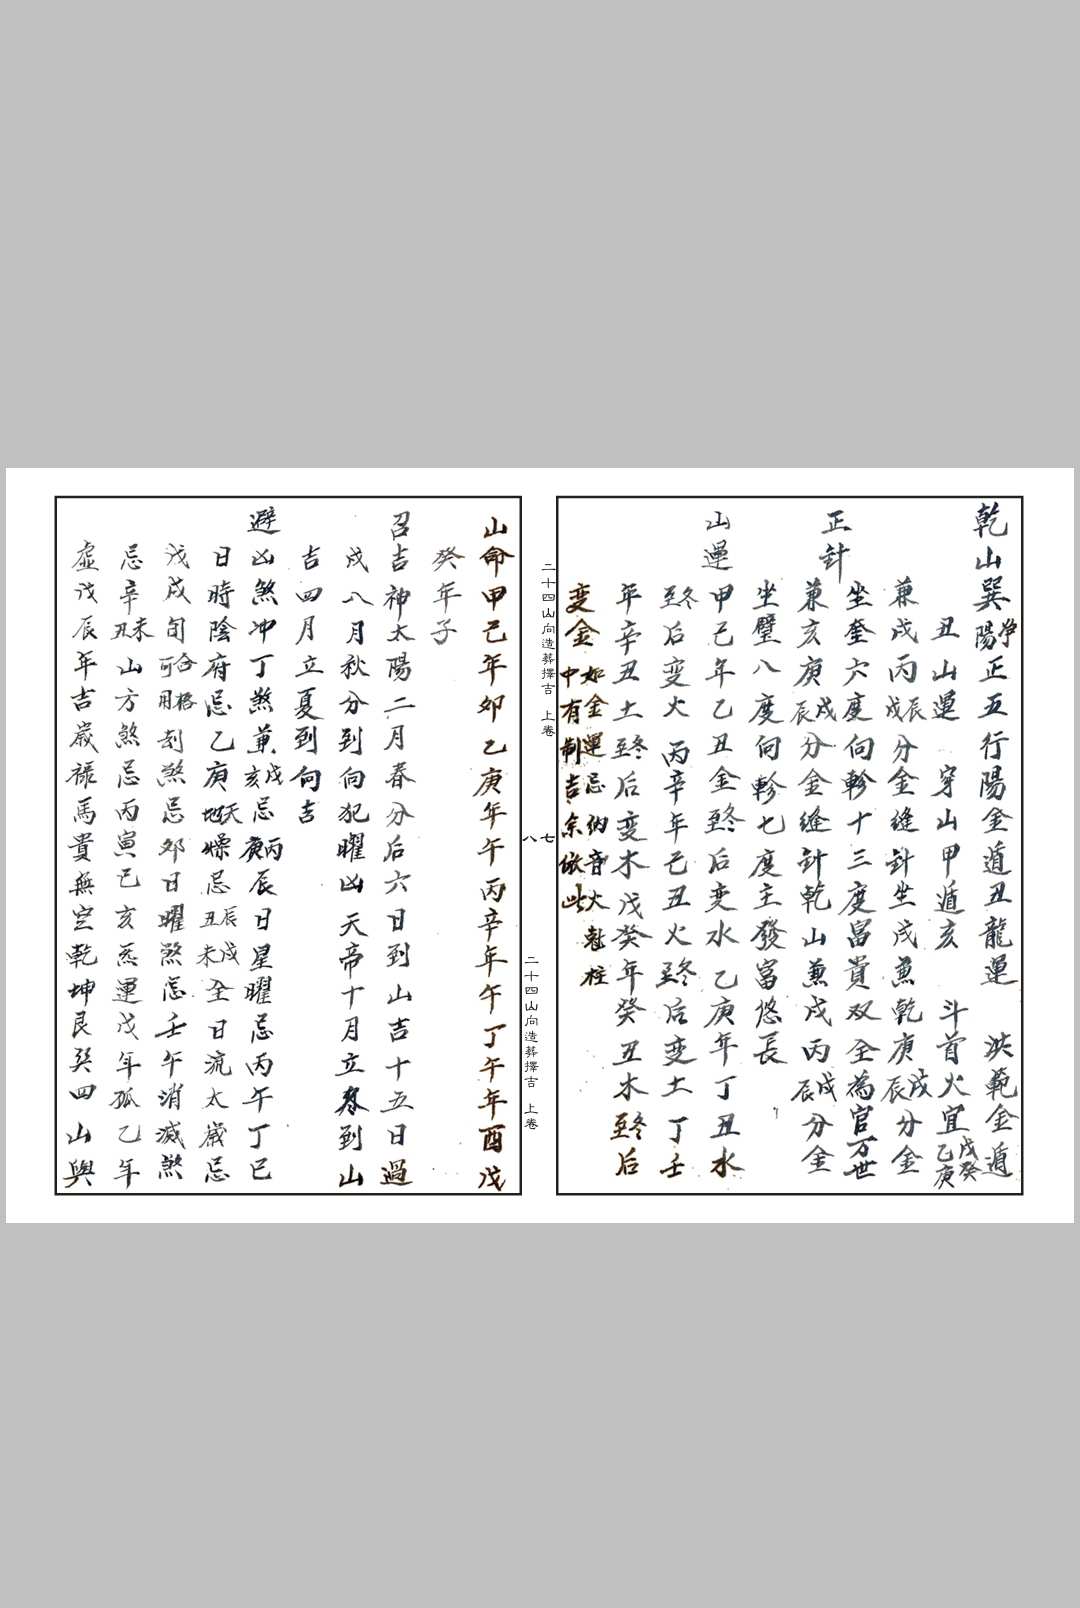 乾山巽 淨陽 正五行陽金遁丑龍運 洪範金遁
丑山運 穿山甲遁亥 斗首火宜戊癸乙庚
兼戌丙辰戌分金縫針坐戌兼乾庚戌辰分金
坐奎六度向軫十三度富貴双全為官万世
正針
兼亥庚戌辰分金縫針乾山兼戌丙戌辰分金
坐壁八度向軫七度主發富悠長
山運 甲己年乙丑金冬至后变水 乙庚年丁丑水
冬至后变火 丙辛年己丑火冬至后变土 丁壬
年辛丑土冬至后变木戊癸年癸丑木冬至后
变金 如金運忌納音火剋柱
中有制吉余倣此
二十四山向造葬擇吉 上卷
七
八
二十四山向造葬擇吉 上卷
山命甲己年卯 乙庚年午 丙辛年午 丁午年酉戊
癸年子
召吉神太陽二月春分后六日到山吉十五日過
戌八月秋分到向犯曜凶 天帝十月立冬到山
吉四月立夏到向吉
避凶煞冲丁煞兼戌亥忌丙庚辰日星曜忌丙午丁巳
日時陰府忌乙庚天地燥忌辰戌丑未全日流太歲忌
戊戌旬合格可用刮煞忌卯日曜煞忌壬午消滅煞
忌辛未丑山方煞忌丙寅己亥忝運戊年孤乙年
虛戊辰年吉歲禄馬貴無空乾坤艮癸四山與